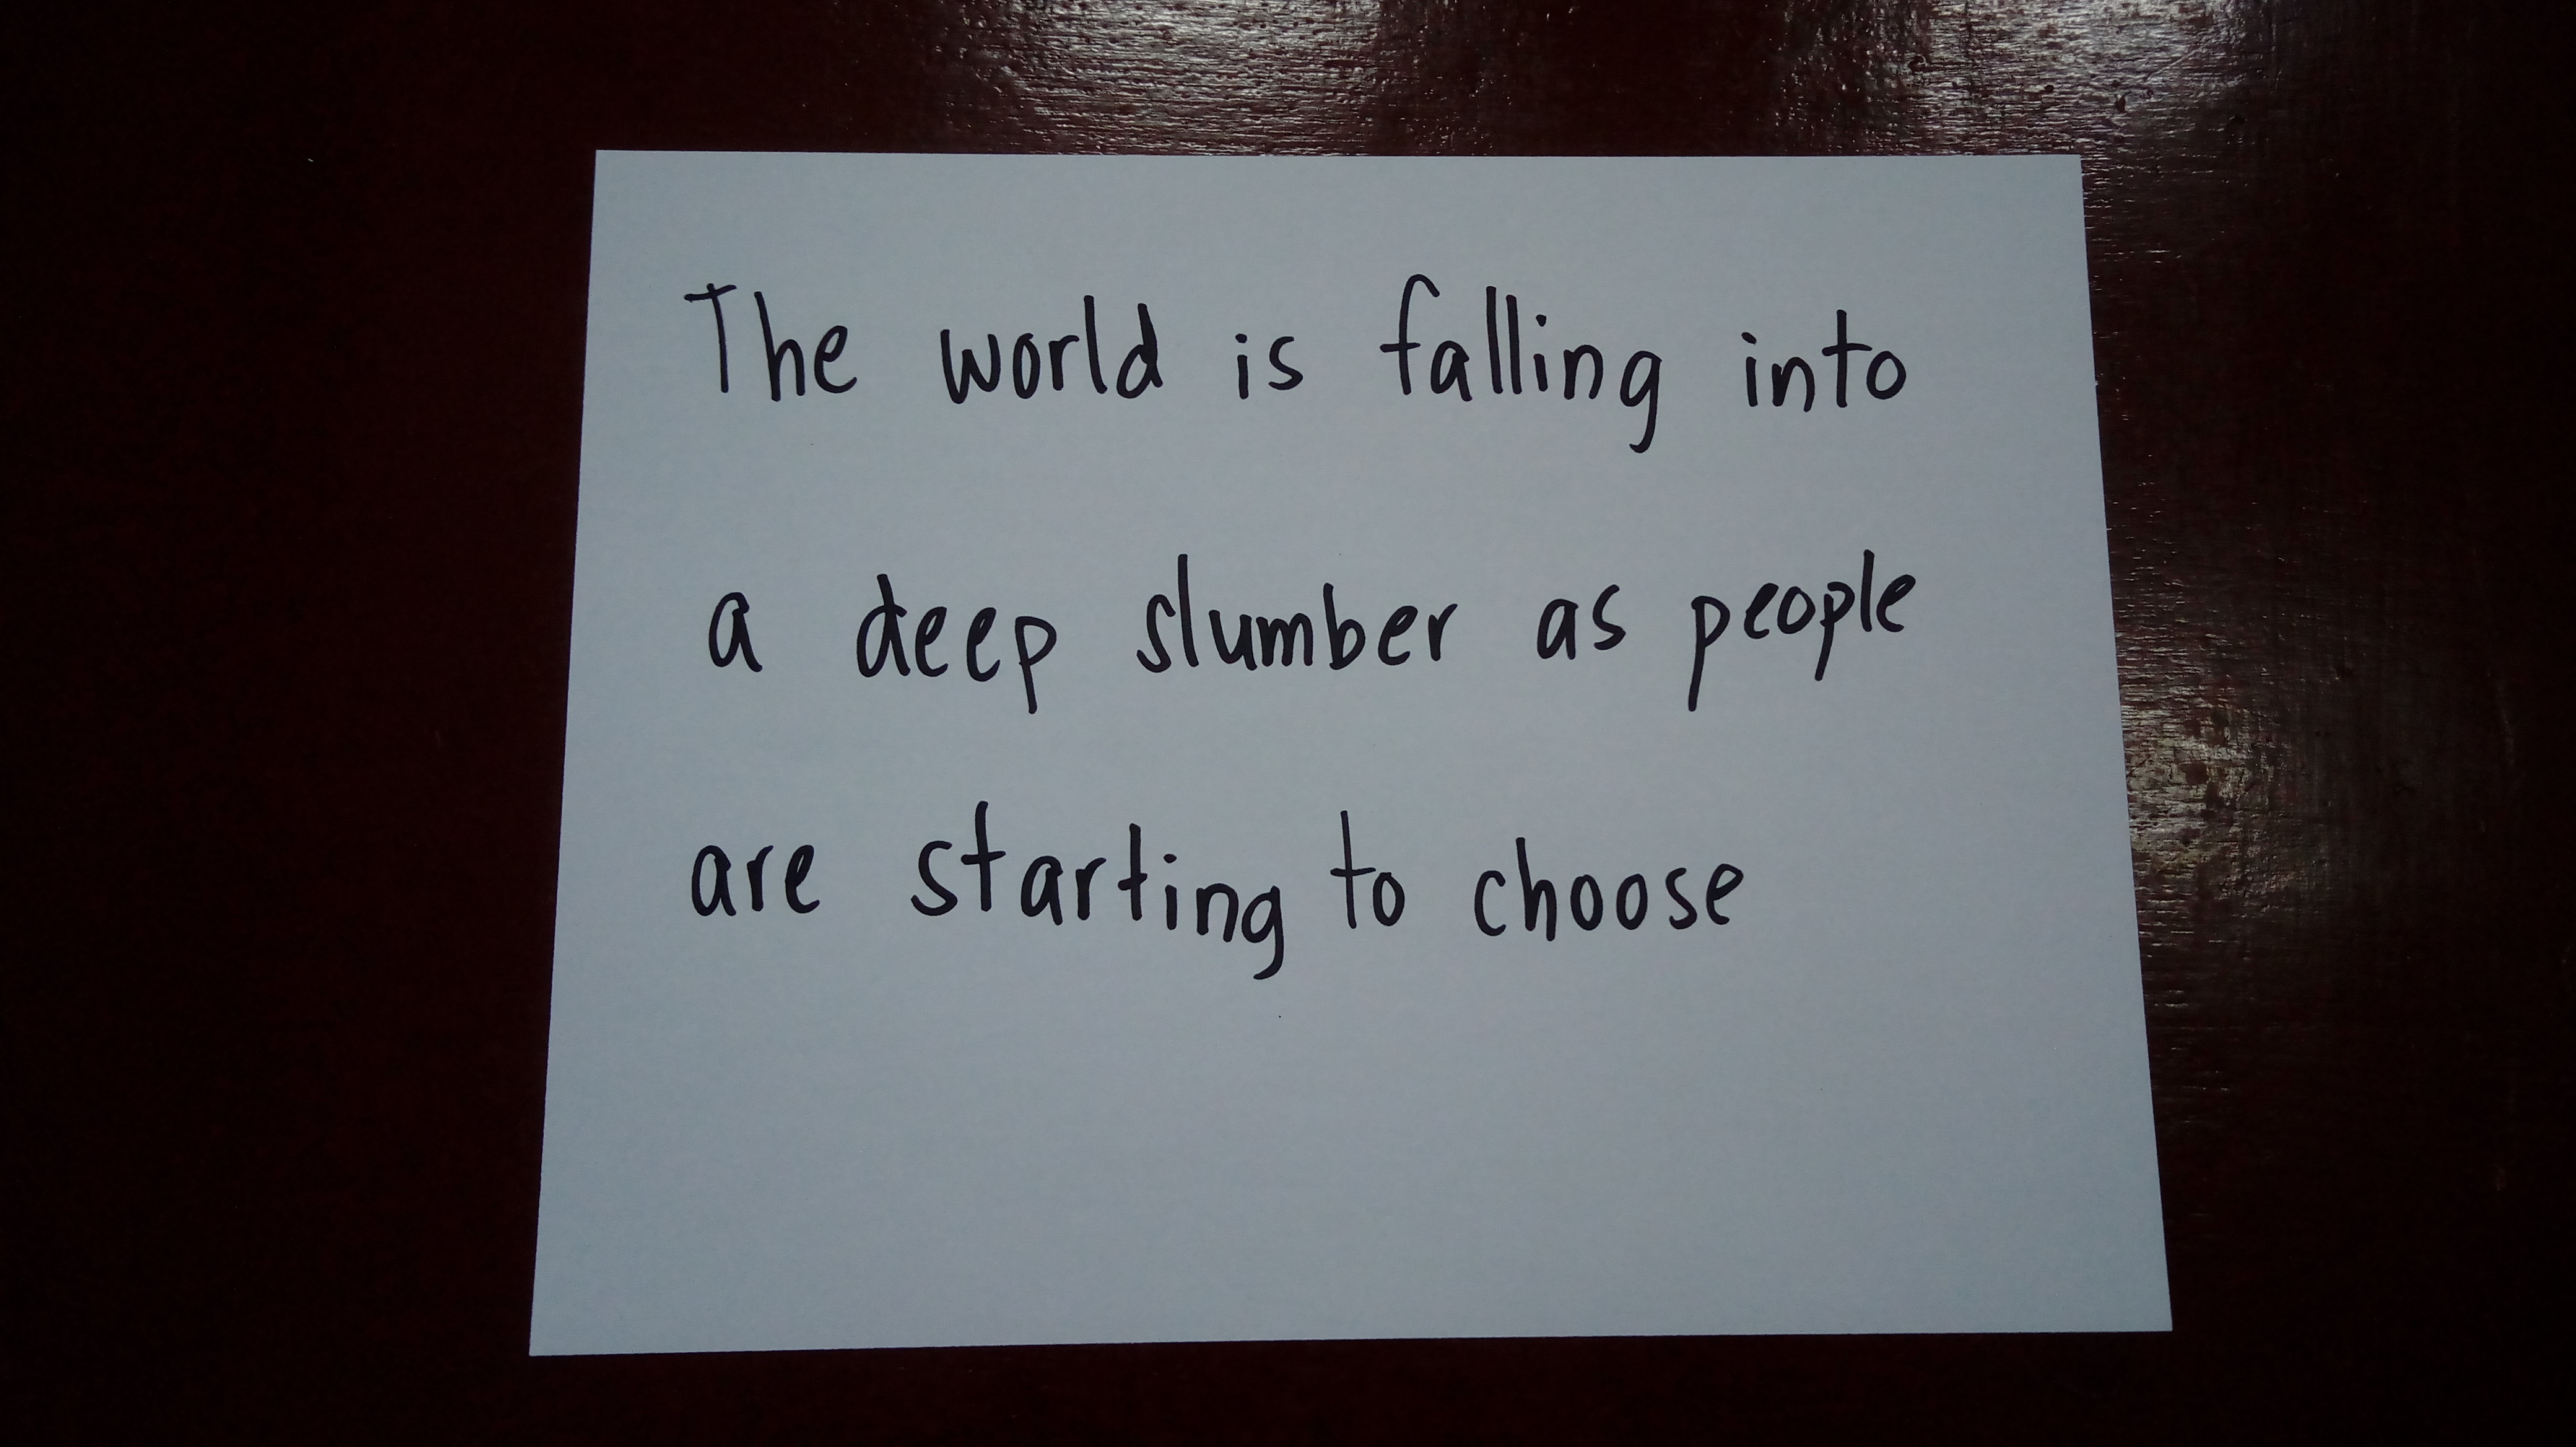 The world is falling into
a deep slumber as people
are starting to choose